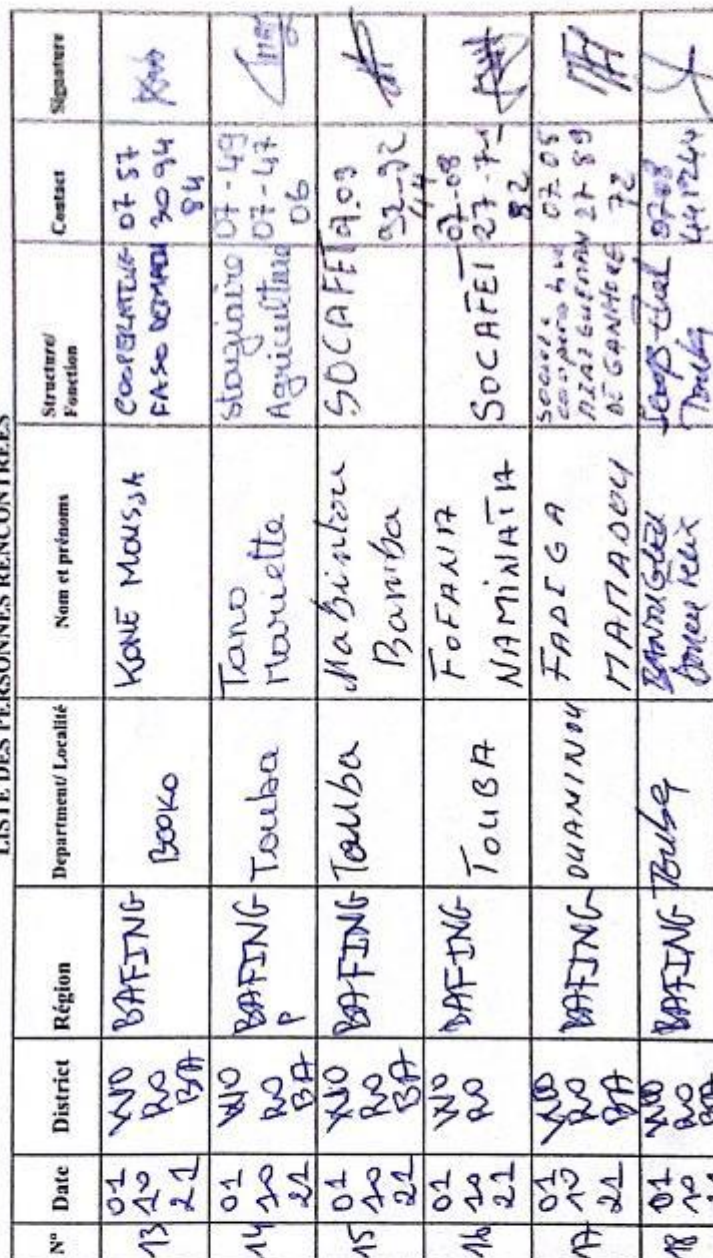 LISTE DES PERSONNES RENCONTREES
N° Date District Région Department/ Localité Nom et prénoms Structure/ Fonction Contact Signature
13 01 10 21 WO RO BA BAFING BOOKO KONE MOUSSA COOPERATIVE FASO DEMADI 07 57 30 94 84
14 01 10 21 WO RO BA BAFING Touba Tano Mariette Stagiaire Agriculture 07-49 07-47 06
15 01 10 21 WO RO BA BAFING Touba Mabintou Bamba SOCAFET 07.09 92-92 44
16 01 10 21 WO RO BAFING TOUBA FOFANA NAMINATA SOCAFET 07-08 27-71 82
17 01 10 21 WO RO BA BAFING OUANINOU FADIGA MAMADOU DE GANHOUE 07 05 27 89 72
18 01 10 WO RO BAFING Touba Touba